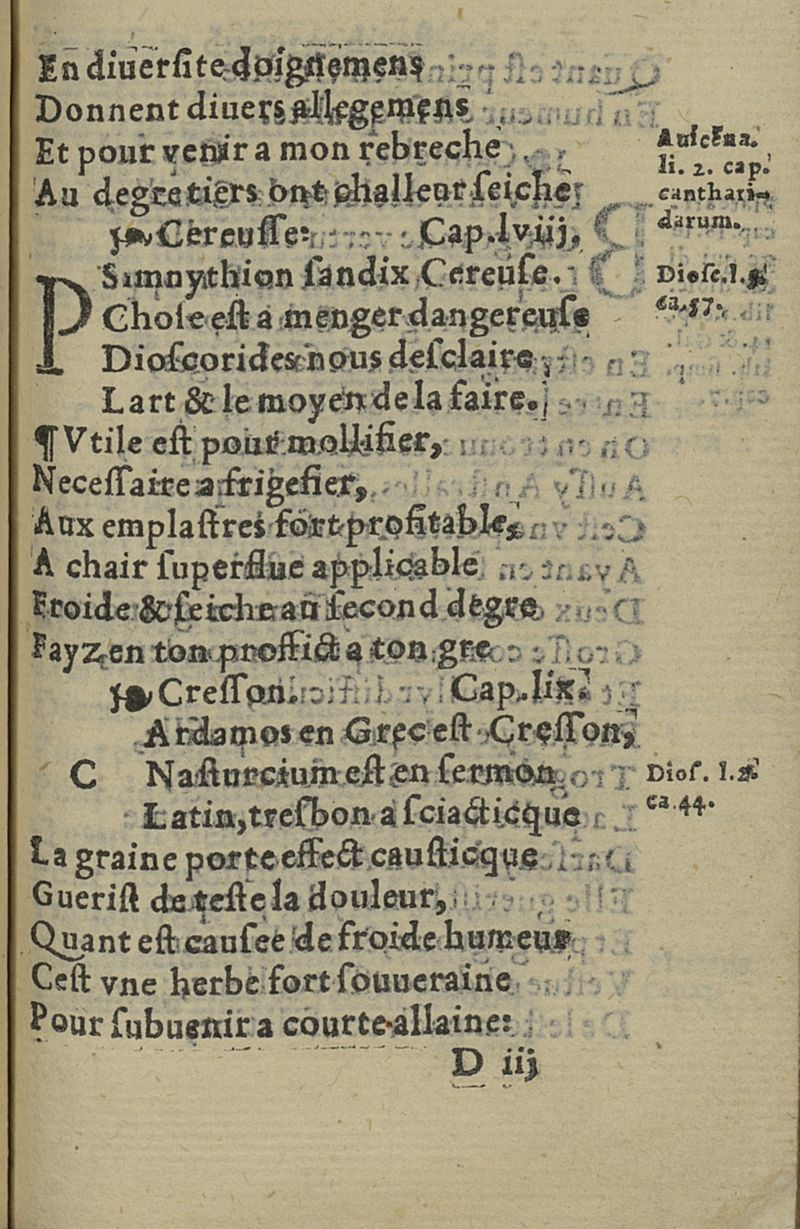 En diuersite doignemens
Donnent diuers allegemens
Et pour venir a mon rebreche
Au degre tiers ont challeur seiche:
Auicenna.
li. 2. cap.
canthari-
darum.
Cereusse: Cap. lviij.
PSimnythion sandix Cereuse.
Chose est a menger dangereuse
Diosc. l. 5.
ca. 57.
Dioscorides nous desclaire,
Lart & le moyen de la faire.
¶ Vtile est pour mollifier,
Necessaire a frigefier,
Aux emplastres fort profitable,
A chair superflue applicable
Froide & seiche au second degre
Fayz en ton proffict a ton gre
Cresson. Cap. lix.
Ardamos en Grec est Cresson,
C Nasturcium est en sermon
Dios. l. 2.
ca. 44.
Latin, tresbon a sciacticque
La graine porte effect causticque
Guerist de teste la douleur,
Quant est causee de froide humeur
Cest vne herbe fort souueraine
Pour subuenir a courte allaine:
D iij